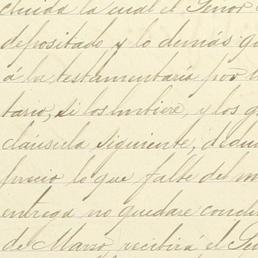 cluida la cual el Señor
depositado y lo demás qu
á la testamentaría por
tario, si los hubiere, y los g
cláusula siguiente, á con
precio lo que falte del m
entrega no quedare conclu
de Marzo, recibirá el Se